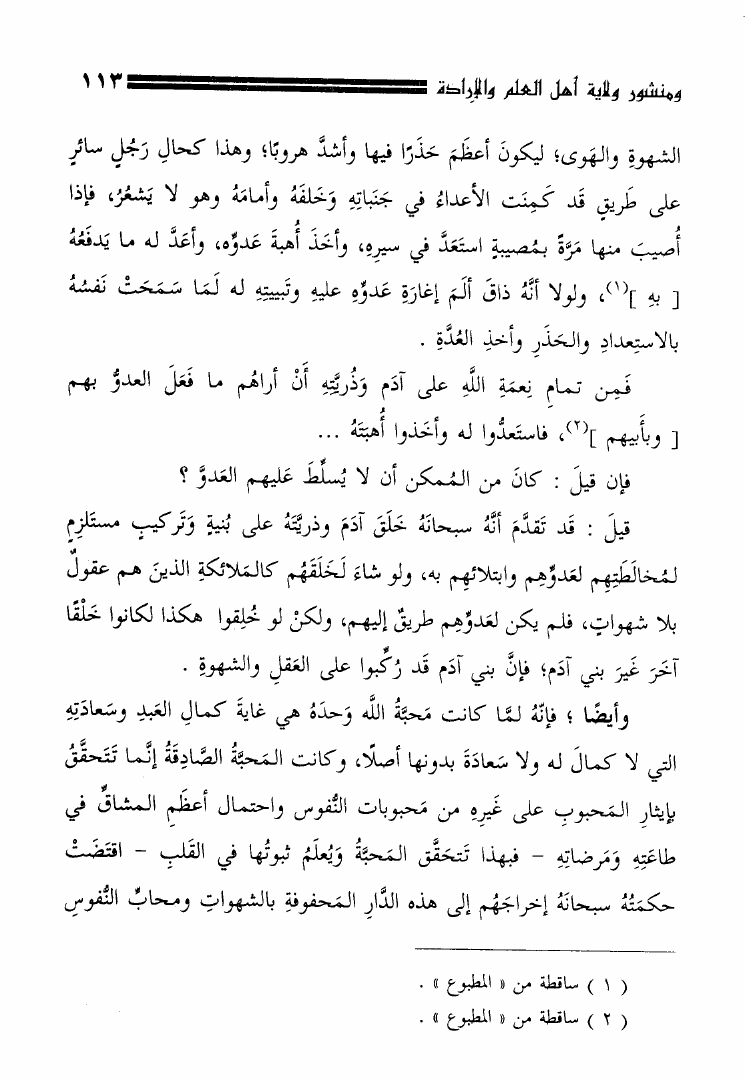 ومنشور ولاية أهل العلم والإرادة ١١٣
الشهوةِ والهَوى؛ ليكونَ أعظَمَ حَذَرًا فيها وأشدَّ هروبًا؛ وهذا كحالِ رَجُلٍ سائرٍ
على طَريقٍ قَد كَمِنَت الأعداءُ في جَنَباتِهِ وَخَلفَهُ وأمامَهُ وهو لا يَشعُرُ، فإذا
أُصيبَ منها مَرَّةً بمُصيبةٍ استَعَدَّ في سيرِهِ، وأخَذَ أُهبةَ عَدوِّه، وأعَدَّ له ما يَدفَعُهُ
[ بهِ ](١)، ولولا أنَّهُ ذاقَ ألَمَ إغارَةِ عَدوِّهِ عليهِ وتَبييتِهِ له لَمَا سَمَحَتْ نَفسُهُ
بالاستِعدادِ والحَذَرِ وأخذِ العُدَّةِ .
فَمِن تمامِ نِعمَةِ اللَّهِ على آدَم وَذُريَّتِهِ أَنْ أراهُم ما فَعَلَ العدوُّ بهم
[ وبأَبيهم ](٢)، فاستَعدُّوا له وأخَذوا أُهبَتَهُ ...
فإن قيلَ : كانَ من المُمكن أن لا يُسلِّطَ عَليهم العَدوَّ ؟
قيلَ : قَد تَقدَّمَ أنَّهُ سبحانَهُ خَلَقَ آدَمَ وذريَّتَهُ على بُنيةٍ وَتَركيبٍ مستَلزِمٍ
لمُخالَطَتِهِم لعَدوِّهِم وابتلائهِم به، ولو شاءَ لَخَلَقَهُم كالمَلائكةِ الذينَ هم عقولٌ
بلا شهواتٍ، فلم يكن لعَدوِّهم طريقٌ إليهم، ولكنْ لو خُلِقوا هكذا لكانوا خَلْقًا
آخَرَ غَيرَ بني آدَم؛ فإنَّ بني آدَم قَد رُكِّبوا على العَقلِ والشهوةِ .
وأيضًا ؛ فإنّهُ لمَّا كانت مَحبَّةُ اللَّه وَحدَهُ هي غايةَ كمالِ العَبدِ وسَعادَتِهِ
التي لا كمالَ له ولا سَعادَةَ بدونها أصلًا، وكانت المَحبَّةُ الصَّادِقَةُ إنَّما تَتَحقَّقُ
بإيثارِ المَحبوبِ على غَيرِهِ من مَحبوبات النُّفوس واحتمال أعظَمِ المشاقِّ في
طاعَتِهِ وَمَرضاتِهِ – فبهذا تَتحَقَّق المَحبَّةُ وَيُعلَمُ ثبوتُها في القَلبِ – اقتَضَتْ
حكمَتُهُ سبحانَهُ إخراجَهُم إلى هذه الدَّارِ المَحفوفةِ بالشهواتِ ومحابِّ النُّفوسِ
( ١ ) ساقطة من « المطبوع » .
( ٢ ) ساقطة من « المطبوع » .